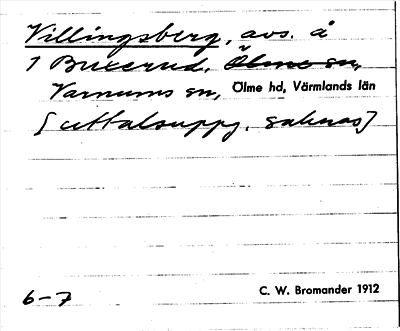 Villingsberg, avs. å
1 Buxerud, Ölme sn,
Varnums sn, Ölme hd, Värmlands län
[uttalsuppg. saknas]
6-7
C. W. Bromander 1912